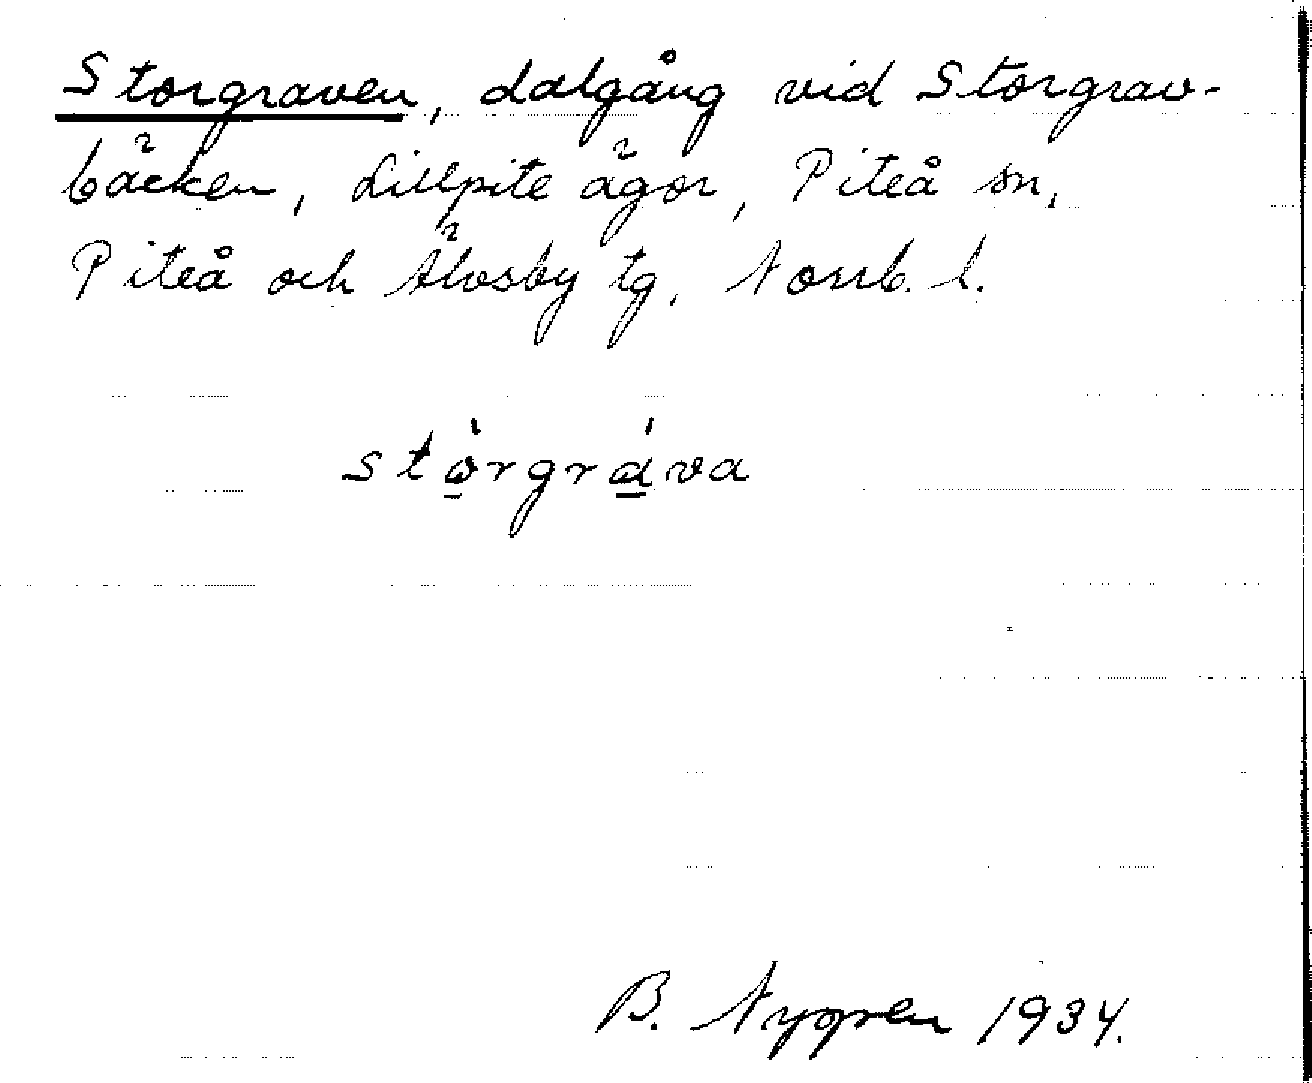 Storgraven, dalgång vid Storgrav-
bäcken, Lillpite ägor, Piteå sn,
Piteå och Älvsby tg, Norrb. l.
stò̱rgrá̱va
B. Nygren 1934.